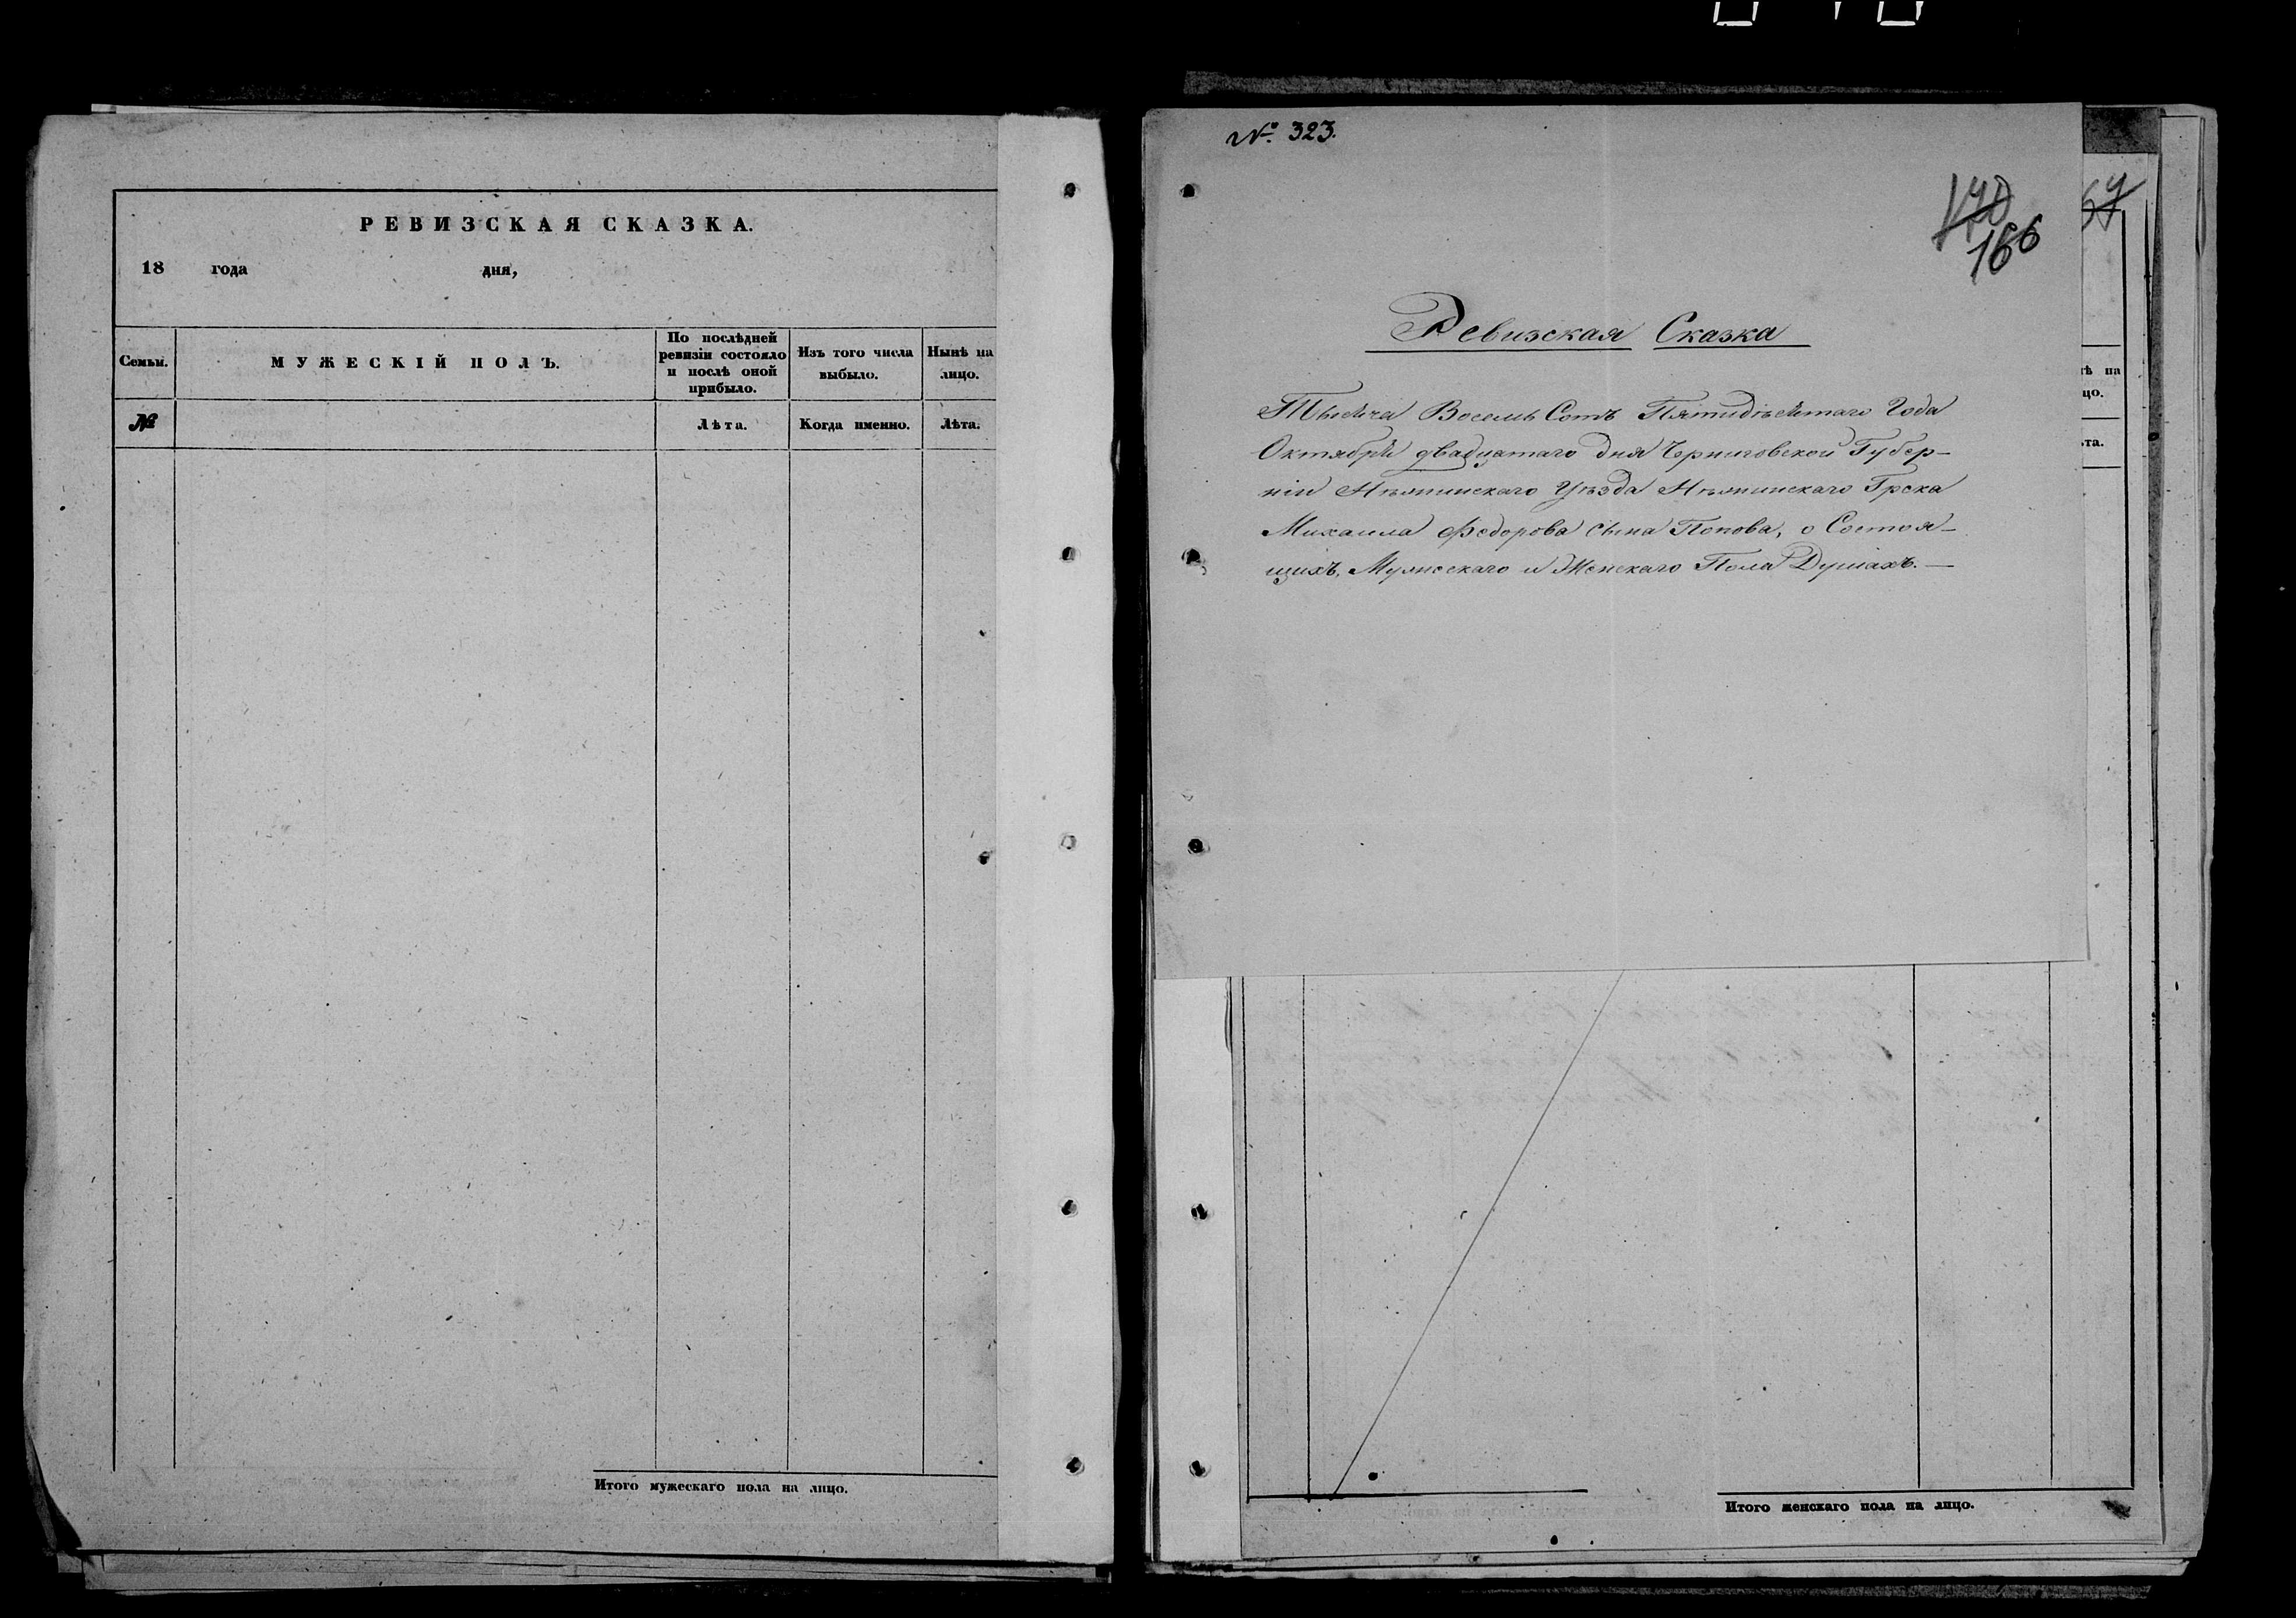 РЕВИЗСКАЯ СКАЗКА.
18 года дня,
Семьи.
МУЖЕСКІЙ ПОЛЪ.
По послѣдней
ревизіи состояло
и послѣ оной
прибыло.
Изъ того числа
выбыло.
Нынѣ на
лицо.
№
Лѣта.
Когда именно.
Лѣта.
Итого мужескаго пола на лицо.
№. 323.
170
166
Ревизская Сказка
Тысяча Восемь Сотъ Пятидесятаго Года
Октября двадцатаго дня Черниговской Губер-
ніи Нѣжинскаго Уѣзда Нѣжинскаго Грека
Михаила Федорова сына Попова, о Состоя-
щихъ, Мужескаго и Женскаго Пола Душахъ.—
ѣ на
цо.
та.
Итого женскаго пола на лицо.